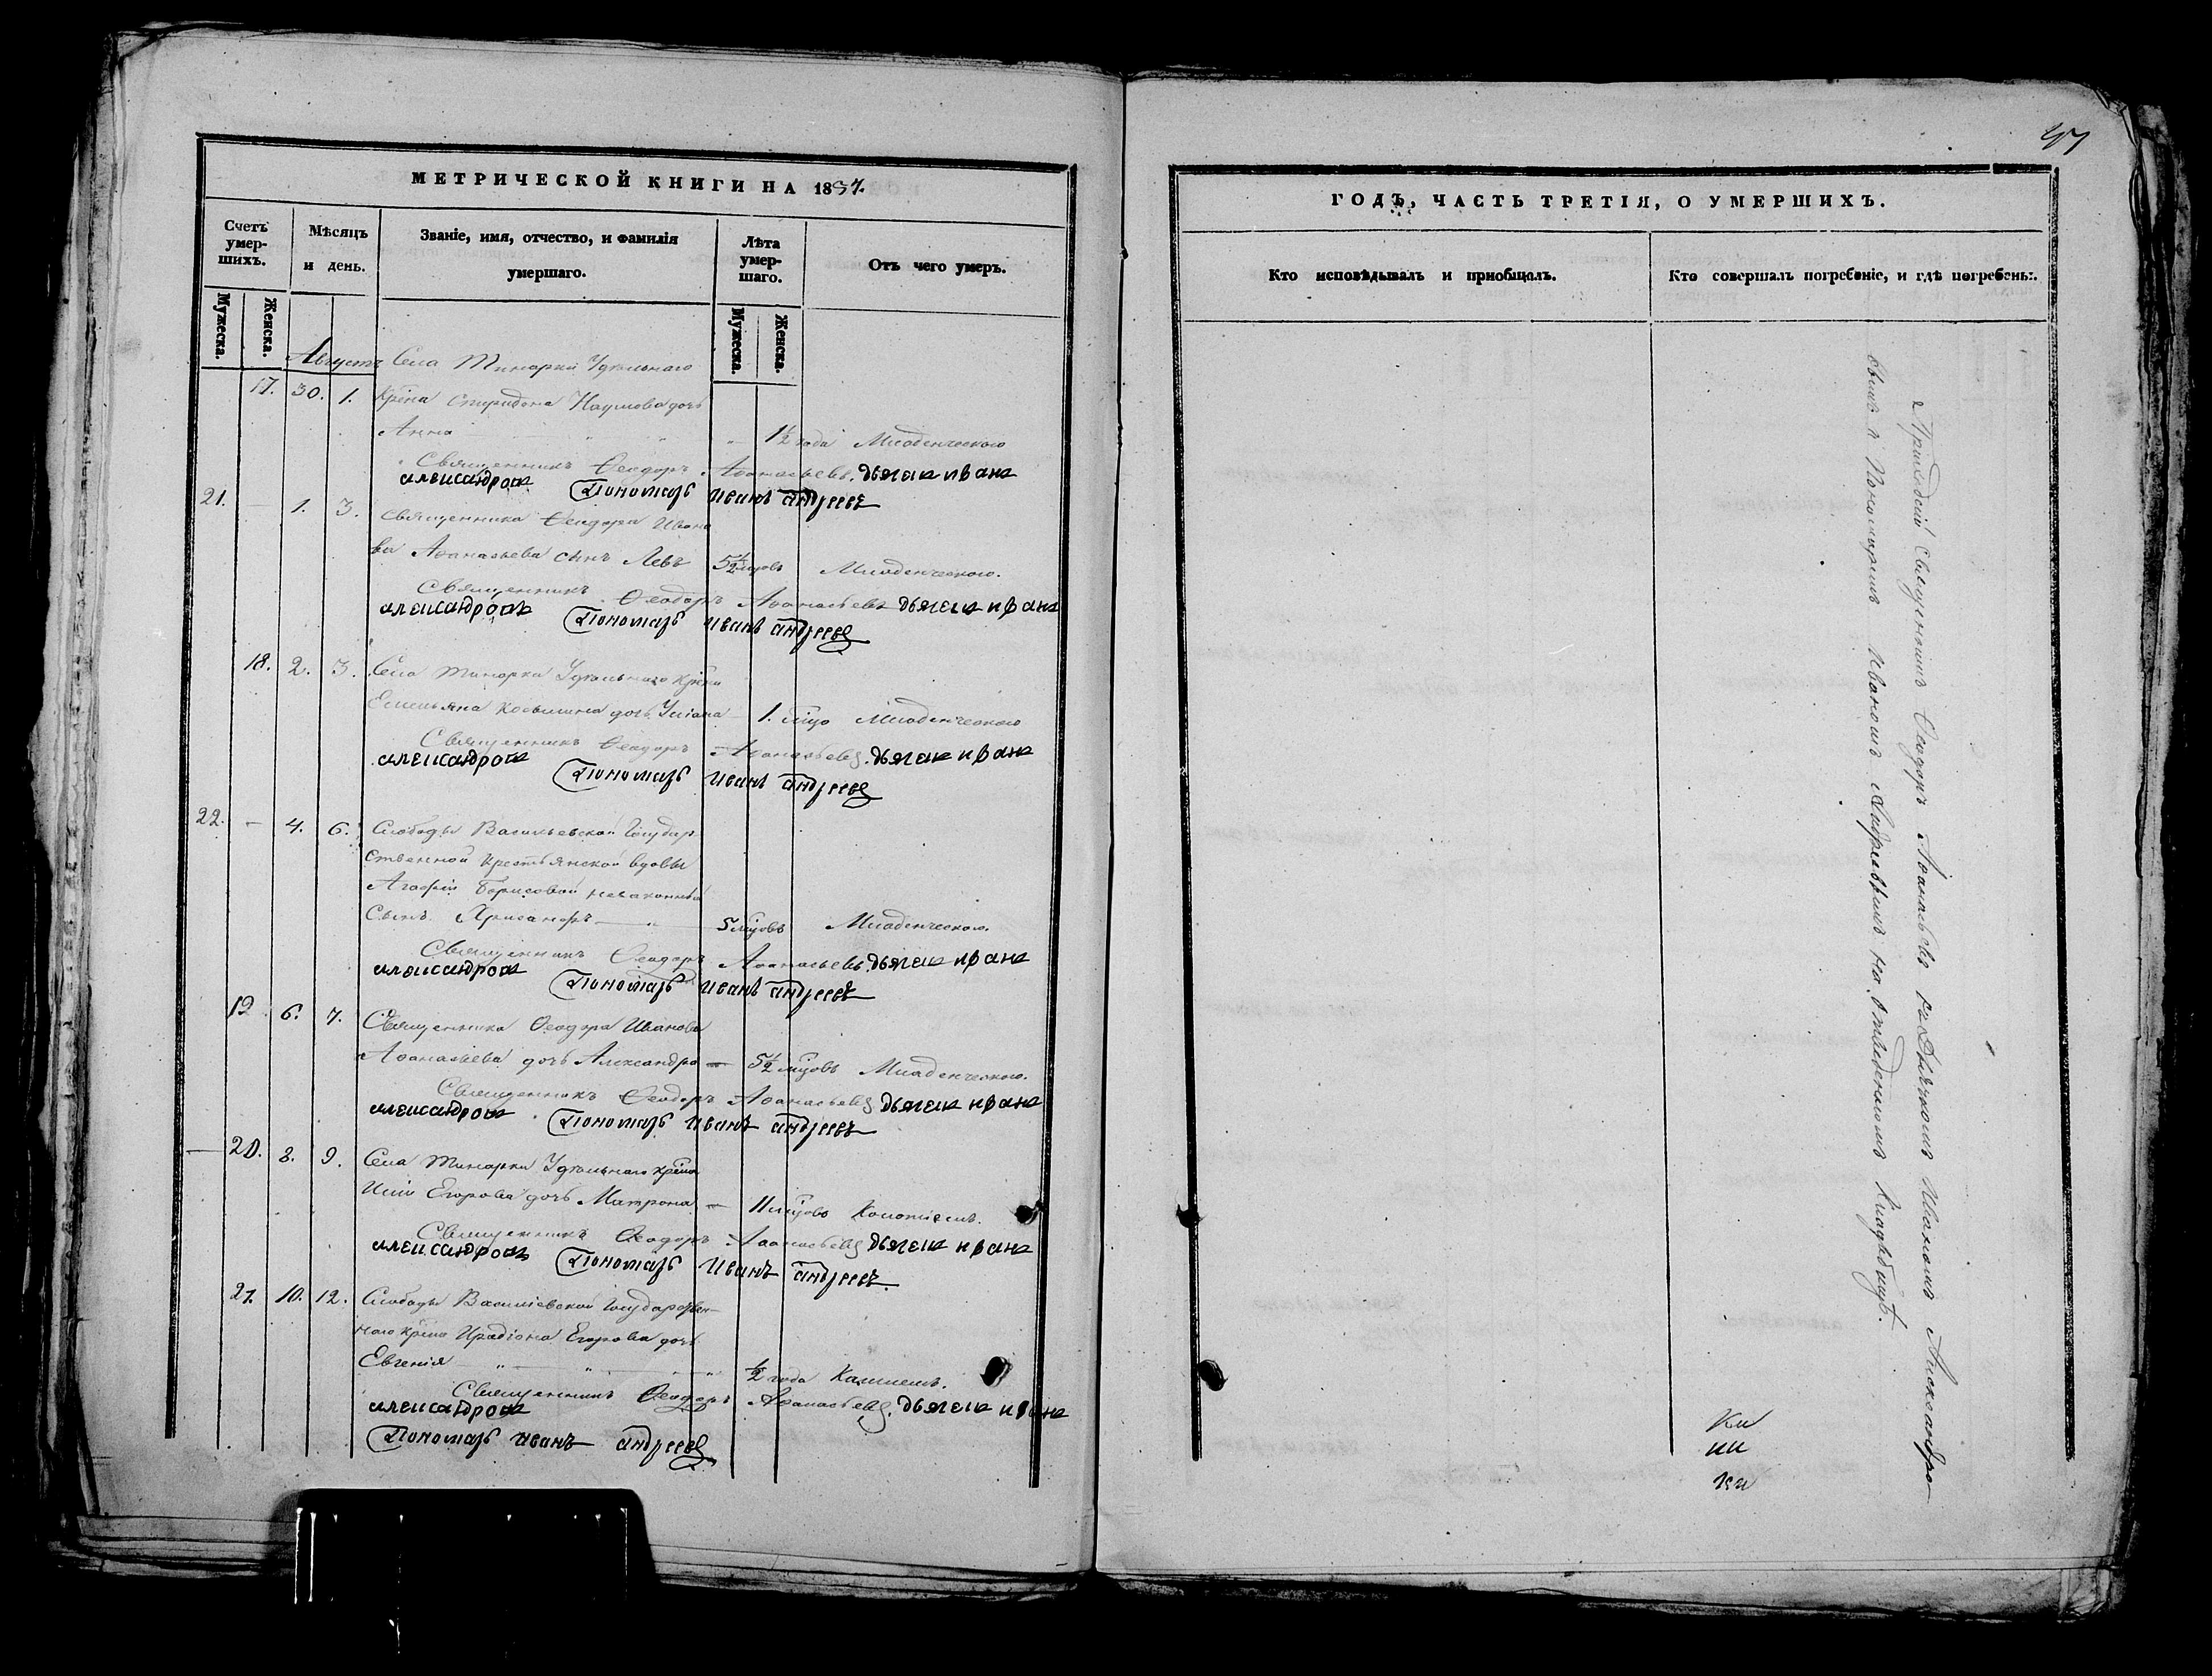 МЕТРИЧЕСКОЙ КНИГИ НА 1837.
Счетъ умер-шихъ.
Мѣсяцъ и день.
Званіе, имя, отчество, и фамилія умершаго.
Лѣта умер-шаго.
Отъ чего умеръ.
Мужеска.
Женска.
Мужеска.
Женска.
Августъ Села Тинарки Удѣльнаго
17. 30. 1. Крѣна Спиридона Наумова дочь
Анна 1½ года Младенческаго
Священникъ Ѳеодоръ Аѳанасьевъ. дьячекъ иванъ
александровъ Пономарь иванъ андреевъ
21. — 1. 3. Священника Ѳеодора Ивано
ва Аѳанасьева сынъ Левъ 5½ мцовъ Младенческаго.
Священникъ Ѳеодоръ Аѳанасьевъ дьячекъ иванъ
александровъ Пономарь иванъ андреевъ
18. 2. 3. Села Тинарки Удѣльнаго крѣна
Емельяна Косьмина дочь Уліана 1. мцо Младенческаго
Священникъ Ѳеодоръ Аѳанасьевъ. дьячекъ иванъ
александровъ Пономарь иванъ андреевъ
22. — 4. 6. Слободы Васильевской Государ
ственной крестьянской вдовы
Агафіи Борисовой незаконный
сынъ Хрисанфъ 5 мцовъ Младенческаго.
Священникъ Ѳеодоръ Аѳанасьевъ. дьячекъ иванъ
александровъ Пономарь иванъ андреевъ
19 6. 7. Священника Ѳеодора Иванова
Аѳанасьева дочь Александра — 5½ мцовъ Младенческаго.
Священникъ Ѳеодоръ Аѳанасьевъ дьячекъ иванъ
александровъ Пономарь иванъ андреевъ
— 20. 8. 9. Села Тинарки Удѣльнаго крѣна
Иліи Егорова дочь Матрона — 11 мцовъ
Священникъ Ѳеодоръ Аѳанасьевъ дьячекъ иванъ
александровъ Пономарь иванъ андреевъ.
21. 10. 12. Слободы Васильевской Государствен-
наго крѣна Иродіона Егорова дочь
Евгенія ½ года Кашлемъ.
Священникъ Ѳеодоръ Аѳанасьевъ. дьячекъ иванъ
александровъ
Пономарь иванъ андреевъ
47
ГОДЪ, ЧАСТЬ ТРЕТІЯ, О УМЕРШИХЪ.
Кто исповѣдывалъ и пріобщалъ.
Кто совершалъ погребеніе, и гдѣ погребены.
Приходскій Священникъ Ѳеодоръ Аѳанасьевъ съ Дьячкомъ Иваномъ Александро
вымъ и Пономаремъ Иваномъ Андреевымъ на отведенномъ Кладбищѣ.